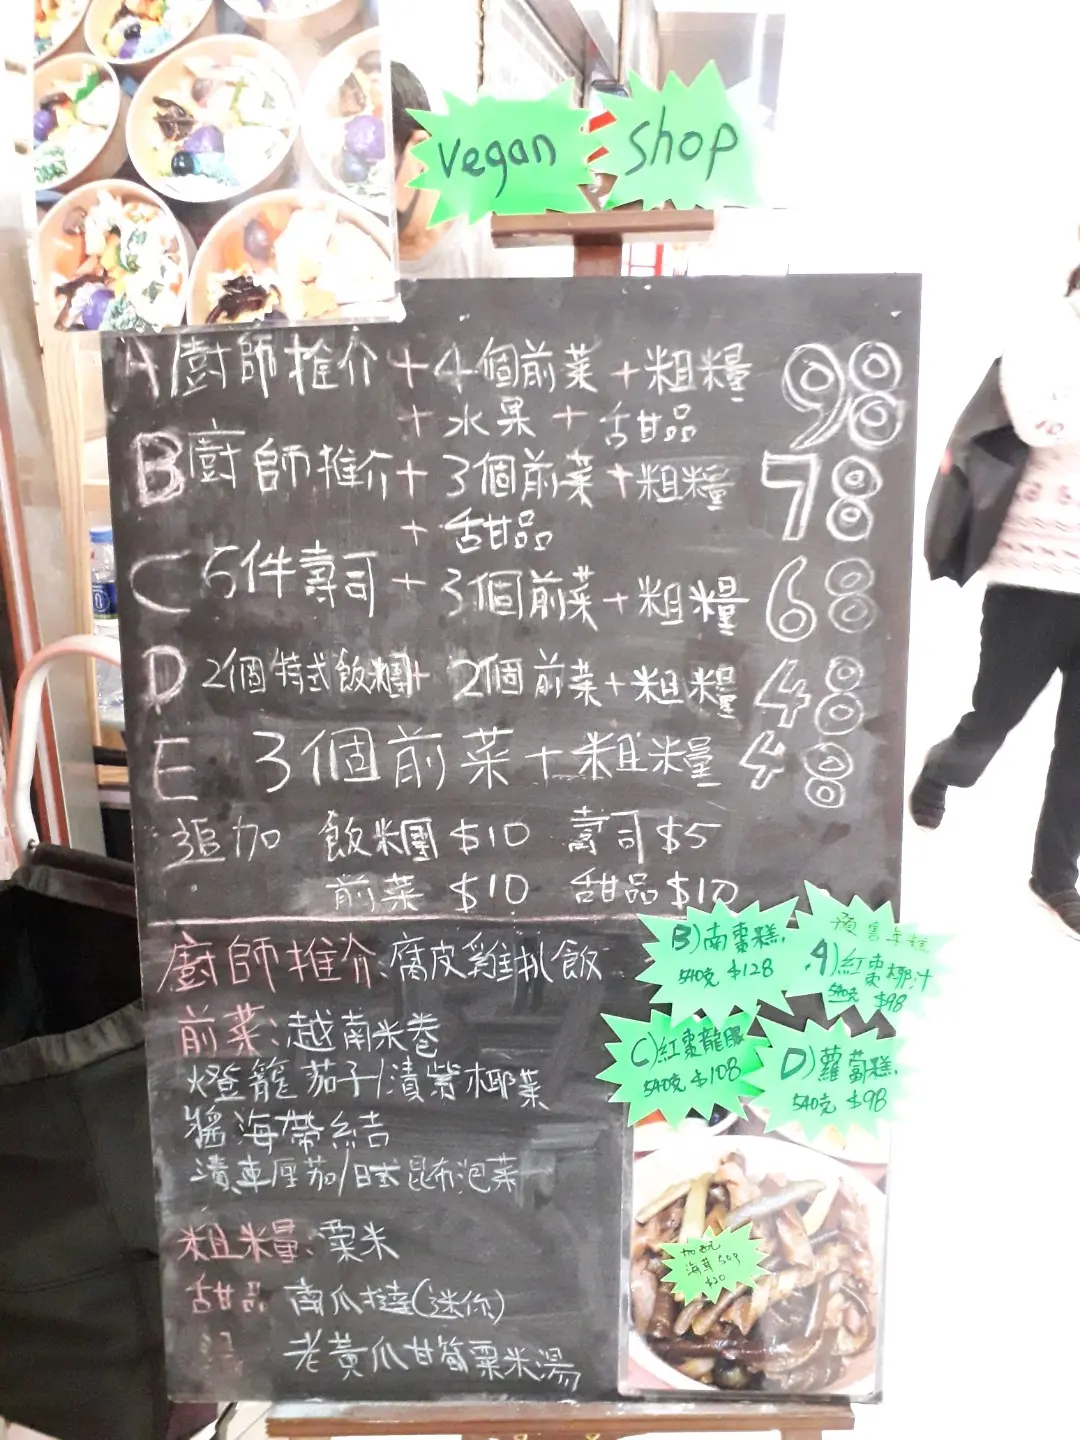 vegan shop
A 廚師推介 + 4個前菜 + 粗糧 98
+ 水果 + 甜品
B 廚師推介 + 3個前菜 + 粗糧 78
+ 甜品
C 5件壽司 + 3個前菜 + 粗糧 68
D 2個特式飯糰 + 2個前菜 + 粗糧 48
E 3個前菜 + 粗糧 48
追加 飯糰 $10 壽司 $5
前菜 $10 甜品 $10
廚師推介:腐皮雞扒飯
前菜:越南米卷
燈籠茄子/漬紫椰菜
醬海帶結
漬車厘茄/日式昆布泡菜
粗糧:粟米
甜品 南瓜撻(迷你)
湯 老黃瓜甘筍粟米湯
預售年糕
A)紅棗椰汁
540克 $98
B)南棗糕
540克 $128
C)紅棗龍眼
540克 $108
D)蘿蔔糕
540克 $98
海茸 50g
$20